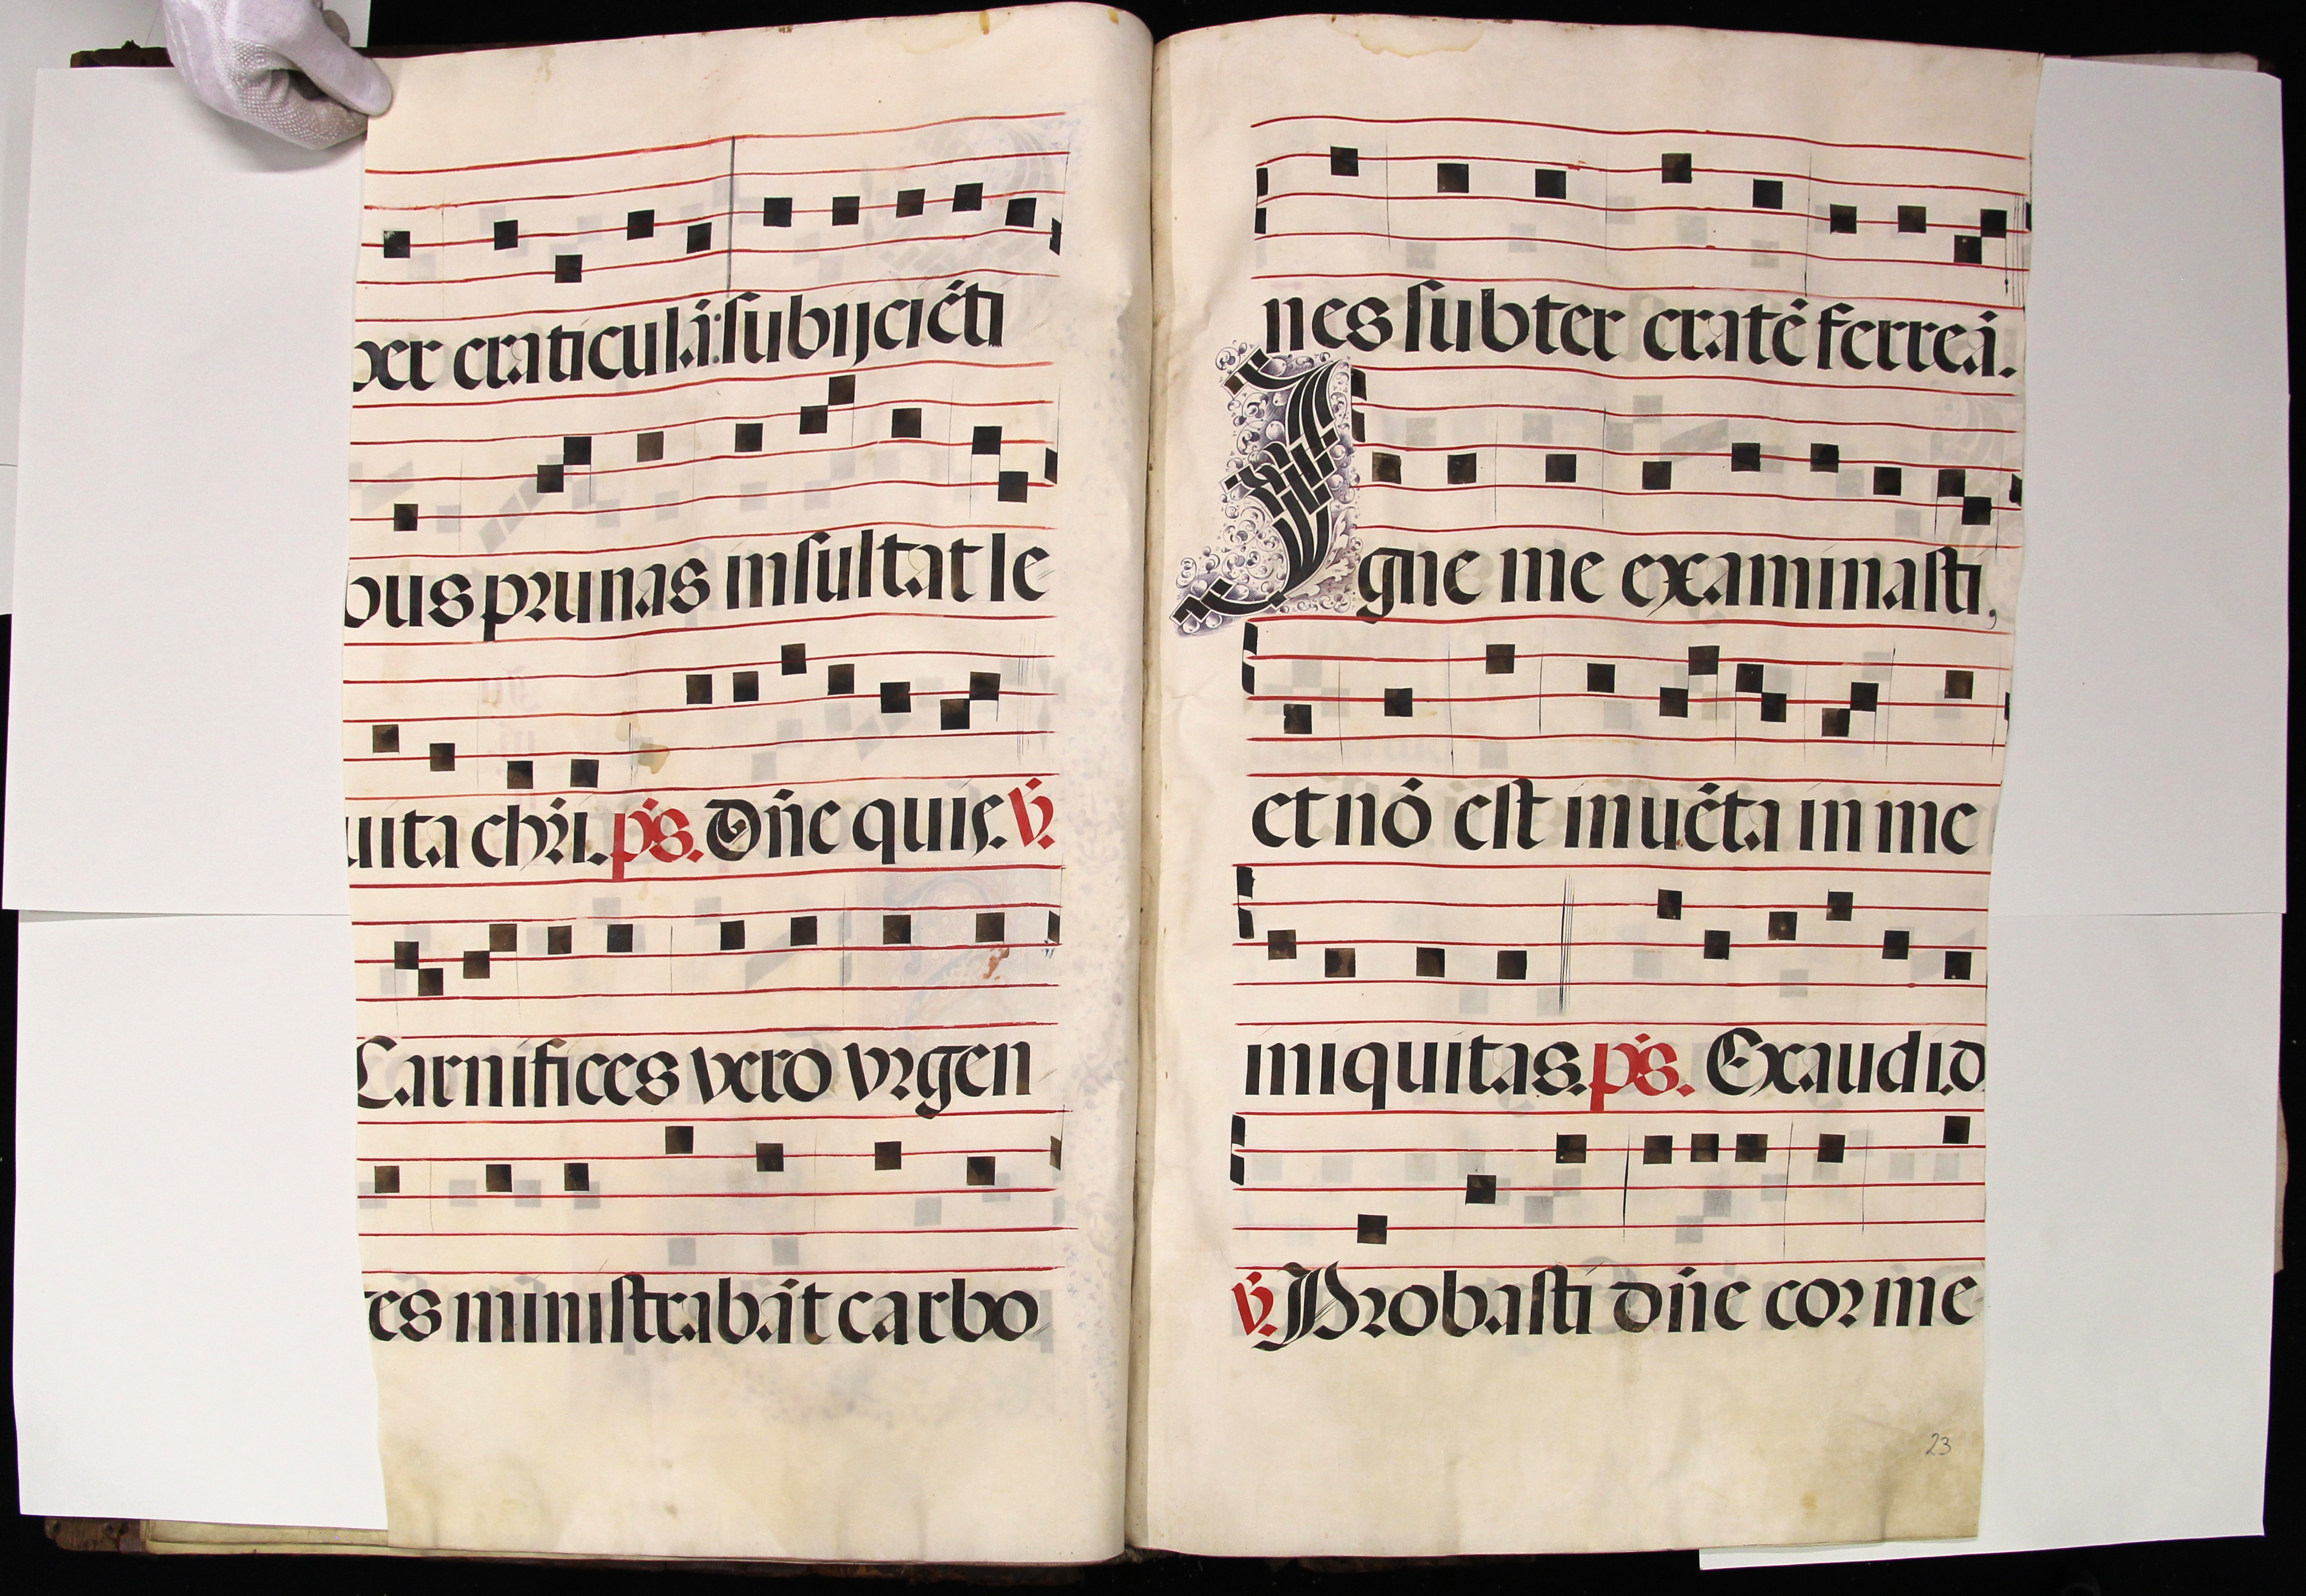 per craticulā: subijciēti
bus prunas insultat le
uita chr̄i. ps. Dn̄e quis. v.
Carnifices vero vrgen
tes ministrabāt carbo
nes subter cratē ferreā.
Igne me examinasti,
et nō est inuēta in me
iniquitas. ps. Exaudi. d
v. Probasti dn̄e cor me
23